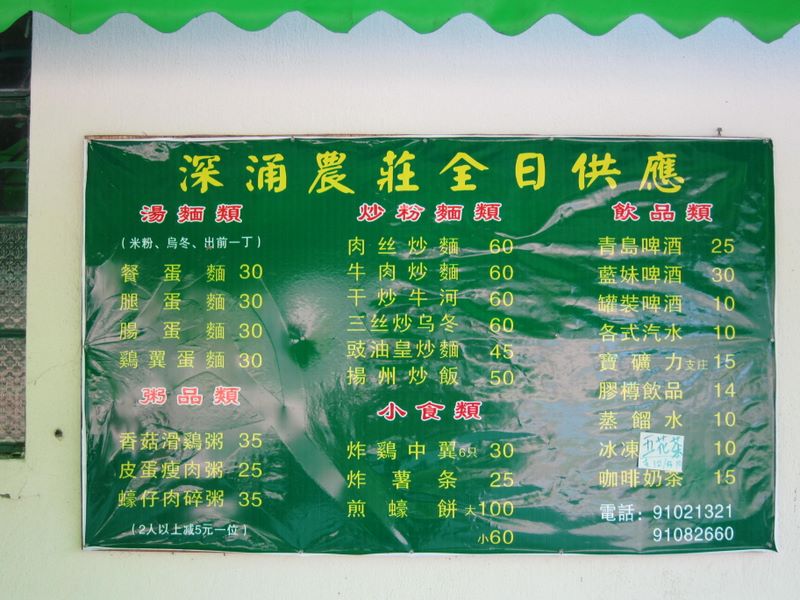 深涌農莊全日供應
湯麵類
(米粉、烏冬、出前一丁)
餐蛋麵 30
腿蛋麵 30
腸蛋麵 30
鷄翼蛋麵 30
粥品類
香菇滑鷄粥 35
皮蛋瘦肉粥 25
蠔仔肉碎粥 35
(2人以上减5元一位)
炒粉麵類
肉丝炒麵 60
牛肉炒麵 60
干炒牛河 60
三丝炒乌冬 60
豉油皇炒麵 45
揚州炒飯 50
小食類
炸鷄中翼6只 30
炸薯条 25
煎蠔餅 大100
小60
飲品類
青島啤酒 25
藍妹啤酒 30
罐裝啤酒 10
各式汽水 10
寶礦力支庄 15
膠樽飲品 14
蒸餾水 10
冰凍五花茶 10
咖啡奶茶 15
電話: 91021321
91082660